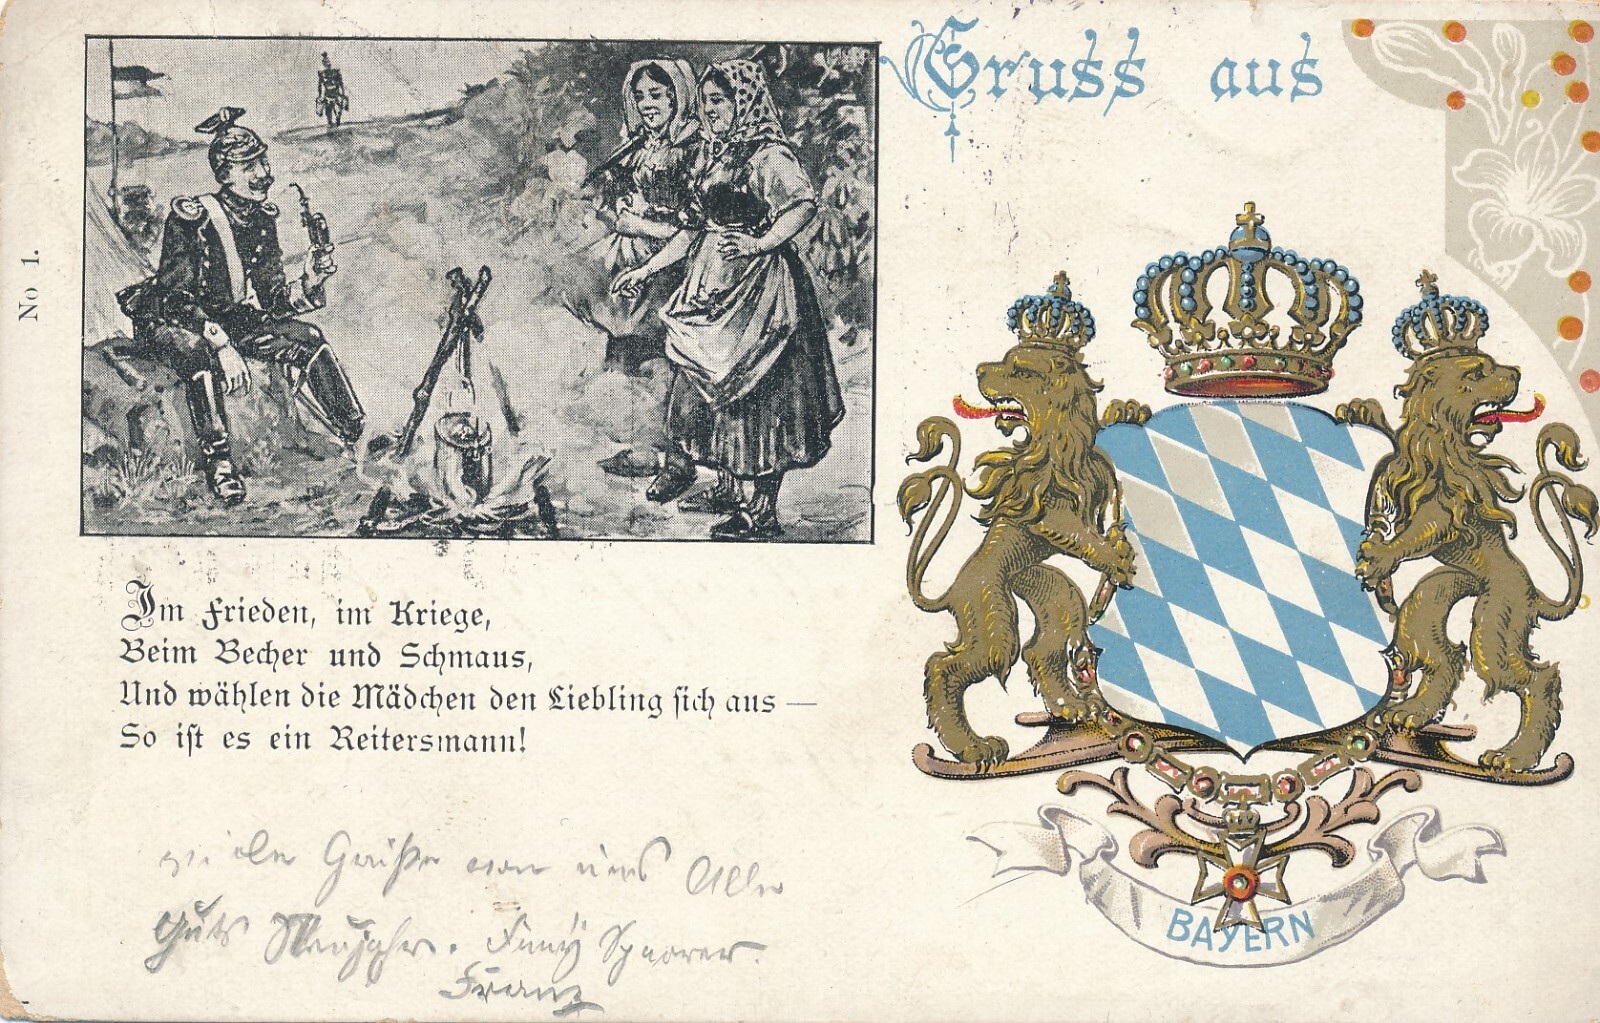 Gruss aus
No 1.
Im Frieden, im Kriege,
Beim Becher und Schmaus,
Und wählen die Mädchen den Liebling sich aus —
So ist es ein Reitersmann!
viele Grüße von uns Allen
Guts Neujahr.
Franz
BAYERN